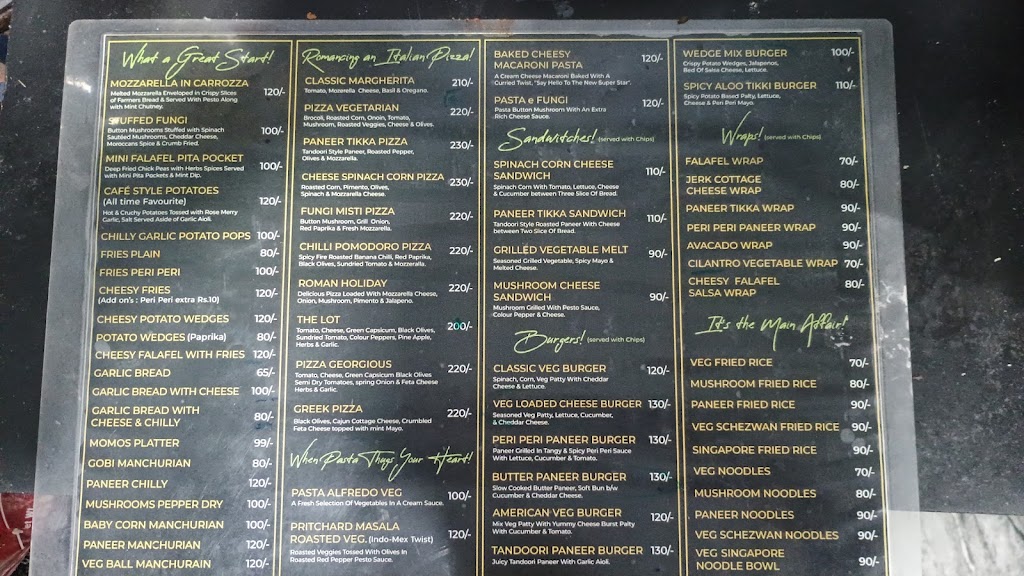 What a Great Start!
MOZZARELLA IN CARROZZA 120/-
Melted Mozzarella Enveloped in Crispy Slices
of Farmers Bread & Served With Pesto Along
with Mint Chutney.
STUFFED FUNGI 100/-
Button Mushrooms Stuffed with Spinach
Sautéed Mushrooms, Cheddar Cheese,
Moroccans Spice & Crumb Fried.
MINI FALAFEL PITA POCKET 100/-
Deep Fried Chick Peas with Herbs Spices Served
with Mini Pita Pockets & Mint Dip.
CAFÉ STYLE POTATOES
(All time Favourite) 120/-
Hot & Cruchy Potatoes Tossed with Rose Merry
Garlic, Salt Served Aside of Garlic Aioli.
CHILLY GARLIC POTATO POPS 100/-
FRIES PLAIN 80/-
FRIES PERI PERI 100/-
CHEESY FRIES 120/-
(Add on's : Peri Peri extra Rs.10)
CHEESY POTATO WEDGES 120/-
POTATO WEDGES (Paprika) 80/-
CHEESY FALAFEL WITH FRIES 120/-
GARLIC BREAD 65/-
GARLIC BREAD WITH CHEESE 100/-
GARLIC BREAD WITH
CHEESE & CHILLY 80/-
MOMOS PLATTER 99/-
GOBI MANCHURIAN 80/-
PANEER CHILLY 120/-
MUSHROOMS PEPPER DRY 100/-
BABY CORN MANCHURIAN 100/-
PANEER MANCHURIAN 120/-
VEG BALL MANCHURAIN 120/-
Romancing an Italian Pizza!
CLASSIC MARGHERITA 210/-
Tomato, Mozerella Cheese, Basil & Oregano.
PIZZA VEGETARIAN 220/-
Brocoli, Roasted Corn, Onoin, Tomato,
Mushroom, Roasted Veggies, Cheese & Olives.
PANEER TIKKA PIZZA 230/-
Tandoori Style Paneer, Roasted Pepper,
Olives & Mozzarella.
CHEESE SPINACH CORN PIZZA 230/-
Roasted Corn, Pimento, Olives,
Spinach & Mozzarella Cheese.
FUNGI MISTI PIZZA 220/-
Button Mushroom, Grill Onion,
Red Paprika & Fresh Mozzarella.
CHILLI POMODORO PIZZA 220/-
Spicy Fire Roasted Banana Chilli, Red Paprika,
Black Olives, Sundried Tomato & Mozzeralla.
ROMAN HOLIDAY 220/-
Delicious Pizza Loaded With Mozzarella Cheese,
Onion, Mushroom, Pimento & Jalapeno.
THE LOT 200/-
Tomato, Cheese, Green Capsicum, Black Olives,
Sundried Tomato, Colour Peppers, Pine Apple,
Herbs & Garlic.
PIZZA GEORGIOUS 220/-
Tomato, Cheese, Green Capsicum Black Olives
Semi Dry Tomatoes, spring Onion & Feta Cheese
Herbs & Garlic.
GREEK PIZZA 220/-
Black Olives, Cajun Cottage Cheese, Crumbled
Feta Cheese topped with mint Mayo.
When Pasta Thugs Your Heart!
PASTA ALFREDO VEG 100/-
A Fresh Selection Of Vegetables In A Cream Sauce.
PRITCHARD MASALA
ROASTED VEG. (Indo-Mex Twist) 120/-
Roasted Veggies Tossed With Olives In
Roasted Red Pepper Pesto Sauce.
BAKED CHEESY
MACARONI PASTA 120/-
A Cream Cheese Macaroni Baked With A
Curried Twist, "Say Hello To The New Super Star".
PASTA e FUNGI 120/-
Pasta Button Mushroom With An Extra
Rich Cheese Sauce.
Sandwitches! (served with Chips)
SPINACH CORN CHEESE
SANDWICH 110/-
Spinach Corn With Tomato, Lettuce, Cheese
& Cucumber between Three Slice Of Bread.
PANEER TIKKA SANDWICH 110/-
Tandoori Style Roasted Paneer With Cheese
between Two Slice Of Bread.
GRILLED VEGETABLE MELT 90/-
Seasoned Grilled Vegetable, Spicy Mayo &
Melted Cheese.
MUSHROOM CHEESE
SANDWICH 90/-
Mushroom Grilled With Pesto Sauce,
Colour Pepper & Cheese.
Burgers! (served with Chips)
CLASSIC VEG BURGER 120/-
Spinach, Corn, Veg Patty With Cheddar
Cheese & Lettuce.
VEG LOADED CHEESE BURGER 130/-
Seasoned Veg Patty, Lettuce, Cucumber,
& Cheddar Cheese.
PERI PERI PANEER BURGER 130/-
Paneer Grilled In Tangy & Spicy Peri Peri Sauce
With Lettuce, Cucumber & Tomato.
BUTTER PANEER BURGER 130/-
Slow Cooked Butter Paneer, Soft Bun b/w
Cucumber & Cheddar Cheese.
AMERICAN VEG BURGER 120/-
Mix Veg Patty With Yummy Cheese Burst Palty
With Cucumber & Tomato.
TANDOORI PANEER BURGER 130/-
Juicy Tandoori Paneer With Garlic Aioli.
WEDGE MIX BURGER 100/-
Crispy Potato Wedges, Jalapenos,
Bed Of Salsa Cheese, Lettuce.
SPICY ALOO TIKKI BURGER 110/-
Spicy Potato Based Palty, Lettuce,
Cheese & Peri Peri Mayo.
Wraps! (served with Chips)
FALAFEL WRAP 70/-
JERK COTTAGE
CHEESE WRAP 80/-
PANEER TIKKA WRAP 90/-
PERI PERI PANEER WRAP 90/-
AVACADO WRAP 90/-
CILANTRO VEGETABLE WRAP 70/-
CHEESY FALAFEL
SALSA WRAP 80/-
It's the Main Affair!
VEG FRIED RICE 70/-
MUSHROOM FRIED RICE 80/-
PANEER FRIED RICE 90/-
VEG SCHEZWAN FRIED RICE 90/-
SINGAPORE FRIED RICE 90/-
VEG NOODLES 70/-
MUSHROOM NOODLES 80/-
PANEER NOODLES 90/-
VEG SCHEZWAN NOODLES 90/-
VEG SINGAPORE
NOODLE BOWL 90/-